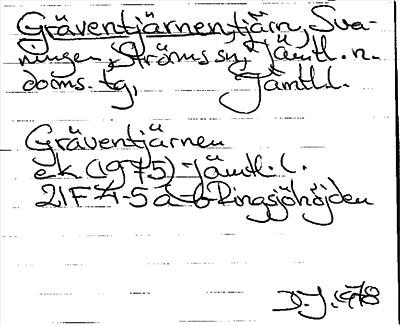 Gräventjärnen, tjärn, Sva-
ningen, Ströms sn, Jämtl. n.
doms. tg, Jämtl l.
Gräventjärnen
ek (1975) Jämtl. l.
21F 4-5 a-b Ringsjöhöjden
D.J. 1978